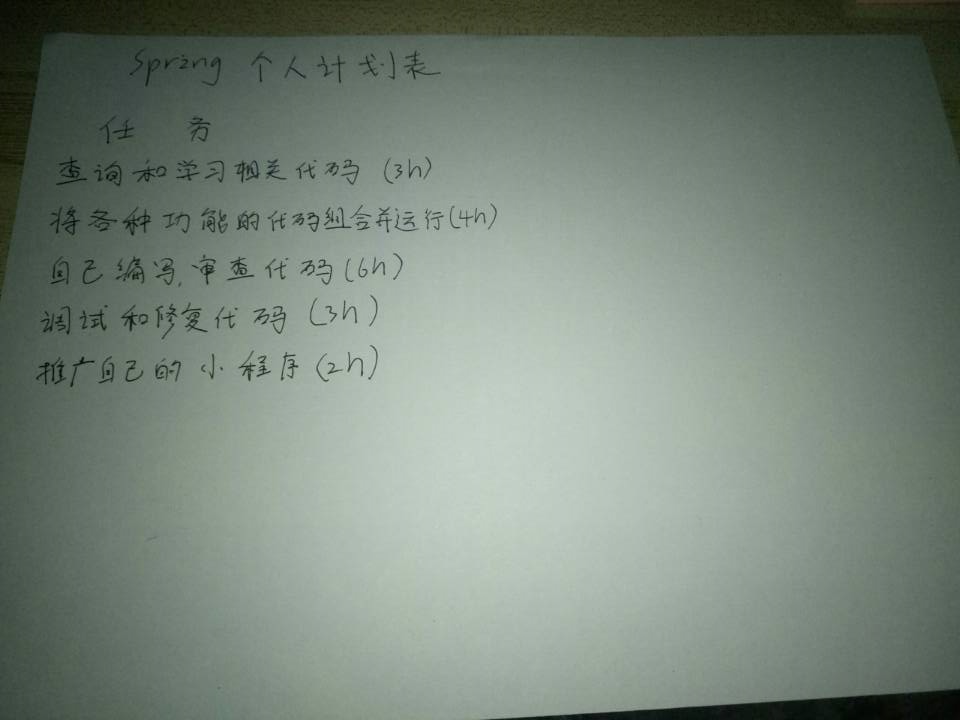 Spring 个人计划表
任 务
查询和学习相关代码 (3h)
将各种功能的代码组合并运行(4h)
自己编写,审查代码(6h)
调试和修复代码 (3h)
推广自己的小程序(2h)